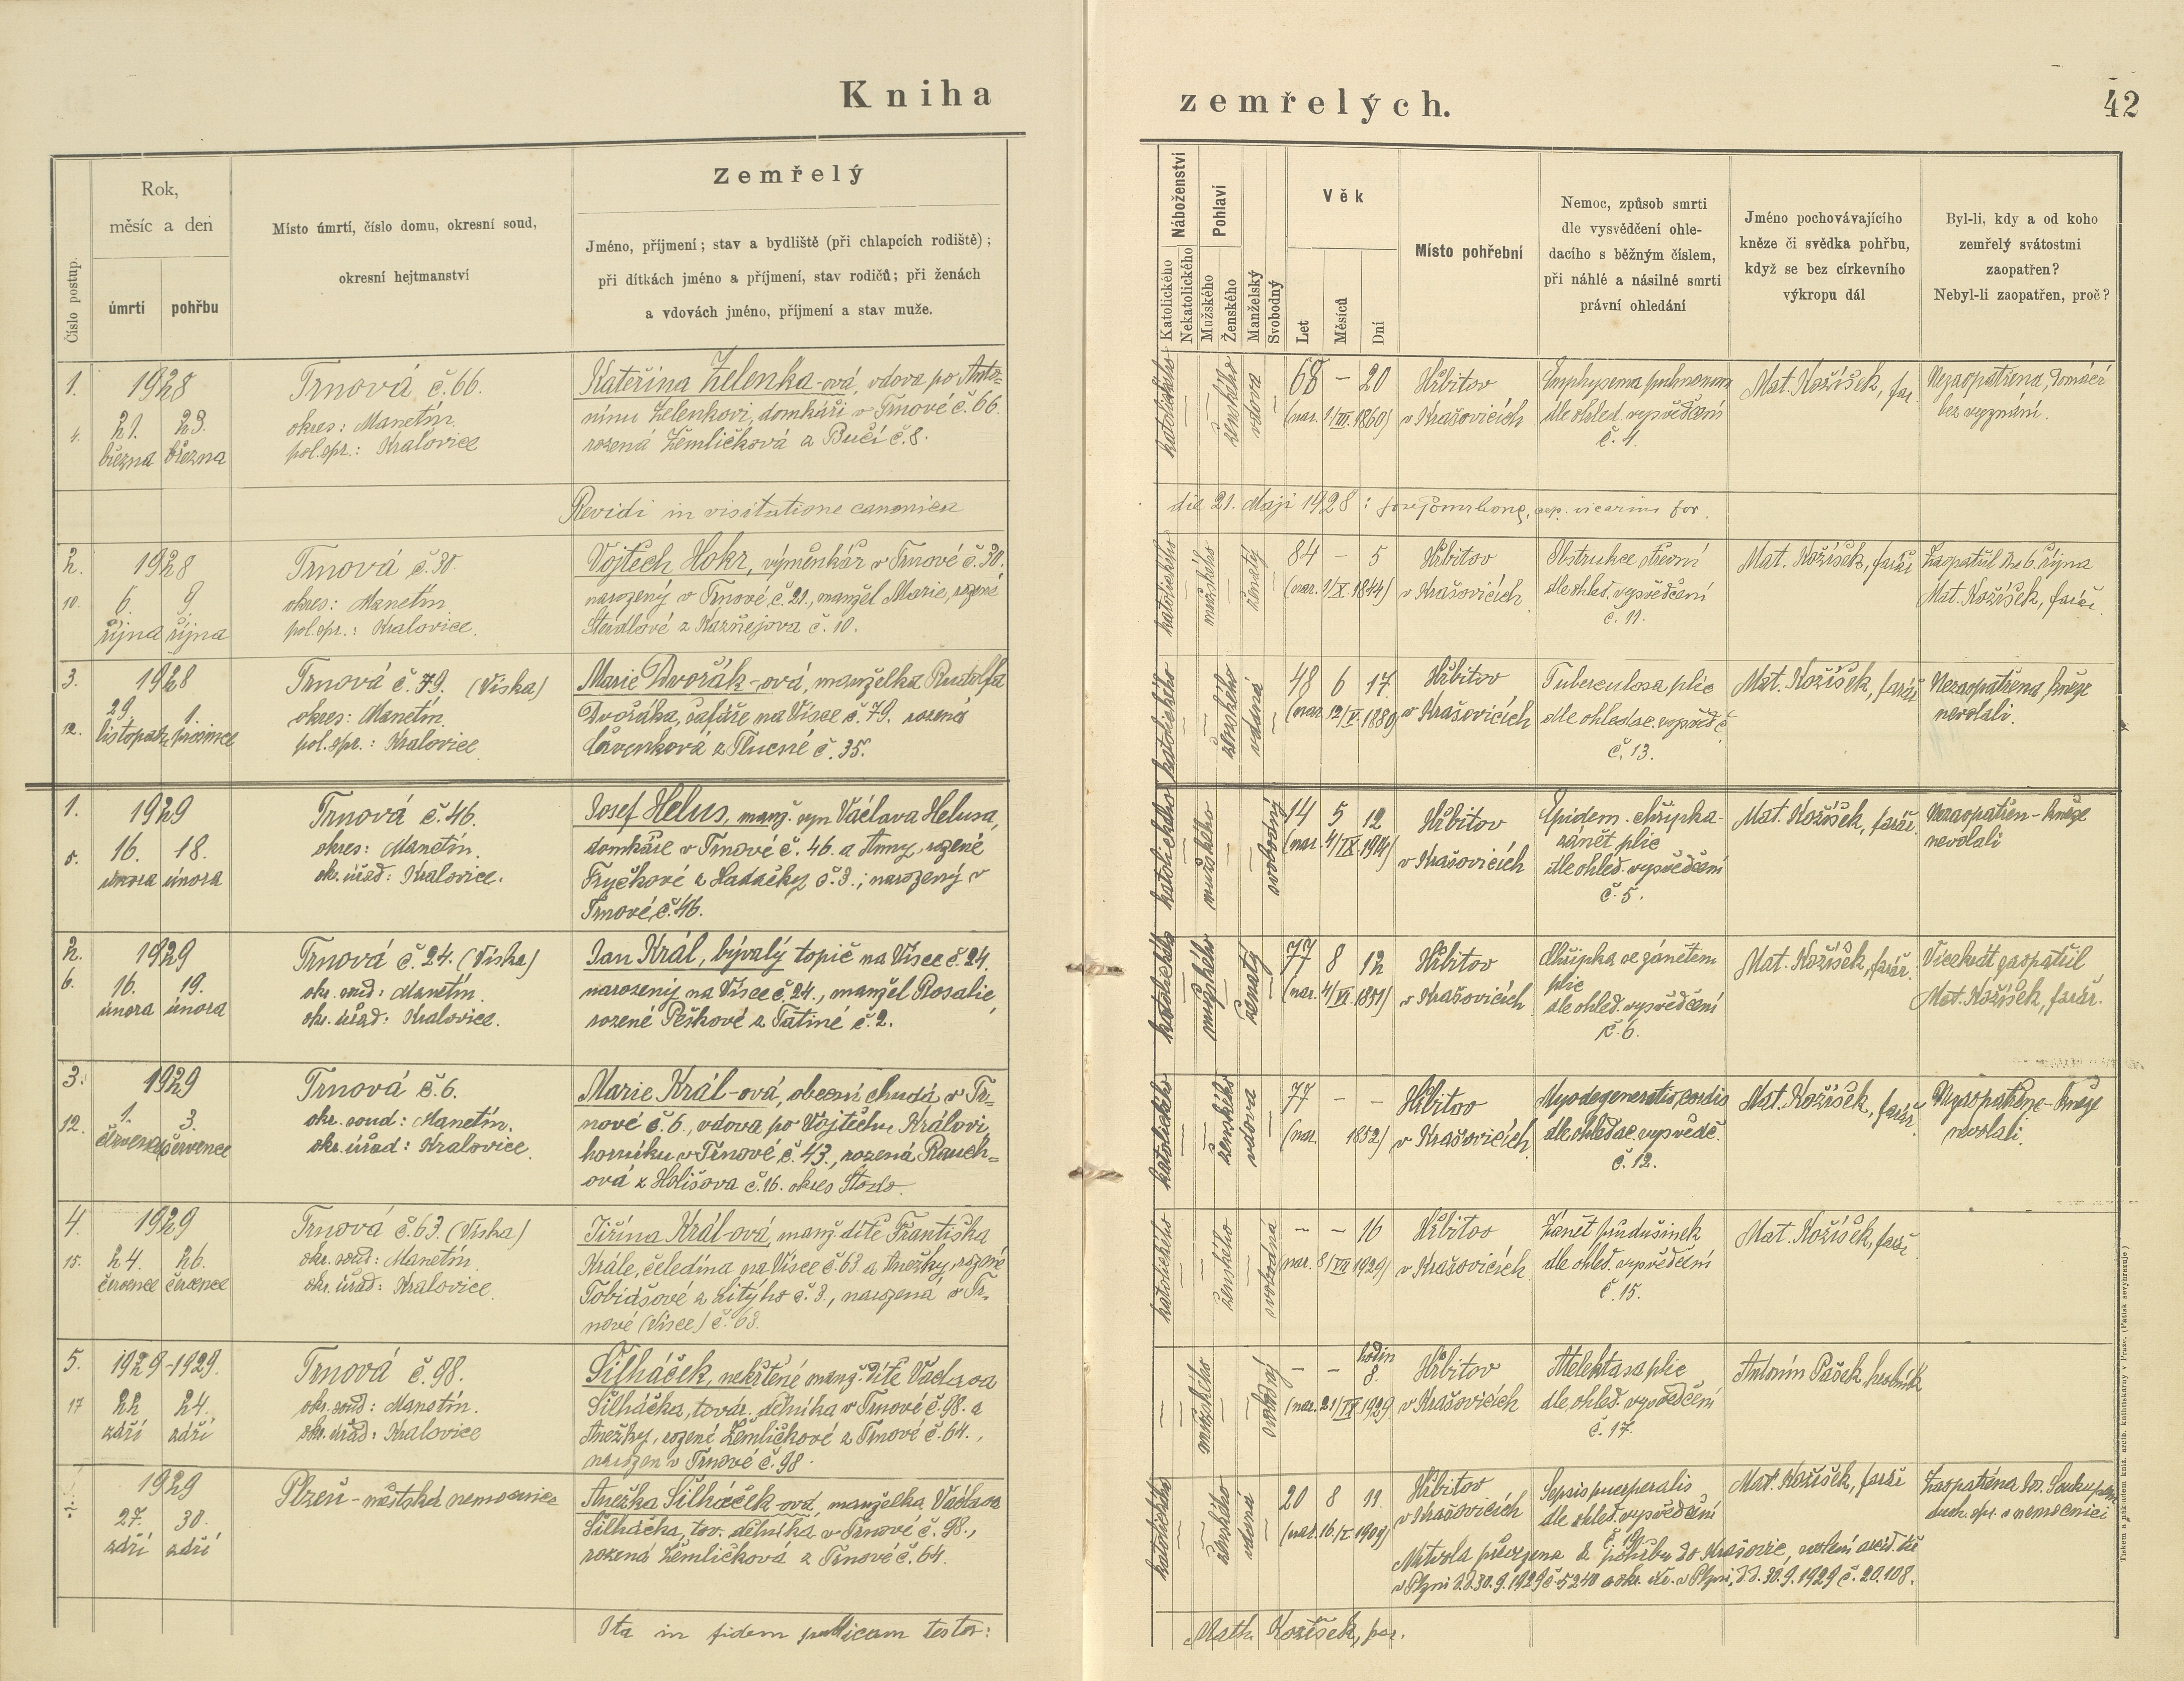 Kniha
zemřelých.
42
Číslo postup.
Rok,
měsíc a den
úmrtí
pohřbu
Místo úmrtí, číslo domu, okresní soud,
okresní hejtmanství
Zemřelý
Jméno, příjmení; stav a bydliště (při chlapcích rodiště);
při dítkách jméno a příjmení, stav rodičů; při ženách
a vdovách jméno, příjmení a stav muže.
Náboženství
Katolického
Nekatolického
Pohlaví
Mužského
Ženského
Manželský
Svobodný
Věk
Let
Měsíců
Dní
Místo pohřební
Nemoc, způsob smrti
dle vysvědčení ohle-
dacího s běžným číslem,
při náhlé a násilné smrti
právní ohledání
Jméno pochovávajícího
kněze či svědka pohřbu,
když se bez církevního
výkropu dál
Byl-li, kdy a od koho
zemřelý svátostmi
zaopatřen?
Nebyl-li zaopatřen, proč?
1.
4.
1928
21. 23.
března března
Trnová č. 66.
okres: Manetín
pol. spr.: Kralovice
Kateřina Zelenka-ová, vdova po Anto-
nínu Zelenkovi, domkáři v Trnové č. 66.
rozená Žemličková z Bučí č. 8.
katolického
ženského
vdova
68 – 20
(nar. 1/III. 1860)
Hřbitov
v Krašovicích
Emphysema pulmonum
dle ohled. vysvědčení
č. 4.
Mat. Kožíšek, far.
Nezaopatřena, Domácí
bez vyznání.
Revidi in visitatione canonica
die 21. Maji 1928:
vicarius for.
2.
10.
1928
6. 9
října října
Trnová č. 30
okres: Manetín
pol. spr.: Kralovice.
Vojtěch Hokr, výměnkář v Trnové č. 30.
narozený v Trnové č. 21., manžel Marie, rozené
z Kaznějova č. 10.
katolického
mužského
ženatý
84 – 5
(nar. 1/X. 1844)
Hřbitov
v Krašovicích
Obstrukce střevní
dle ohled. vysvědčení
č. 11.
Mat. Kožíšek, farář
Zaopatřil dne 6. října
Mat. Kožíšek, farář.
3.
12.
1928
29. 1.
listopadu prosince
Trnová č. 79. (Víska)
okres: Manetín.
pol. spr.: Kralovice
Marie Dvořák-ová, manželka Rudolfa
Dvořáka, šafáře na Vísce č. 79. rozená
z Tlucné č. 35.
katolického
ženského
vdaná
48 6 17
(nar. 12/V. 1880
Hřbitov
v Krašovicích
Tuberculosa plic
dle ohledac. vysvědč.
č. 13.
Mat. Kožíšek, farář
Nezaopatřena, kněze
nevolali.
1.
1929
16. 18.
února února
Trnová č. 46.
okres: Manetín.
ok. úřad: Kralovice.
Josef Helus, manž. syn Václava Helusa,
domkáře v Trnové č. 46. a Anny, rozené
Fryčkové z Hadačky č. 3.; narozený v
Trnové, č. 46.
katolického
mužského
svobodný
14 5 12
(nar. 4/IX 1914)
Hřbitov
v Krašovicích
Epidem. chřipka-
zánět plic
dle ohled. vysvědčení
č. 5.
Mat. Kožíšek, farář.
Nezaopatřen - kněze
nevolali
2.
6.
1929
16. 19.
února února
Trnová č. 24. (Víska)
okr. soud: Manetín.
okr. úřad: Kralovice.
Jan Král, bývalý topič na Vísce č. 24.
narozený na Vísce č. 24., manžel Rosalie,
rozené Peškové z Tatiné č. 2.
katolického
mužského
ženatý
77 8 12
(nar. 4/VI. 1851)
Hřbitov
v Krašovicích
Chřipka se zánětem
plic
dle ohled. vysvědčení
č. 6.
Mat. Kožíšek, farář.
Vícekrát zaopatřil
Mat. Kožíšek, farář.
3.
12.
1929
1. 3.
července července
Trnová č. 6.
okr. soud: Manetín.
okr. úřad: Kralovice.
Marie Král-ová, obecní chudá v Tr-
nové č. 6., vdova po Vojtěchu Královi,
horníku v Trnové č. 43., rozená Rauch-
ová z Holišova č. 16. okres Stodo
katolického
ženského
vdova
77 – –
(nar. 1852)
Hřbitov
v Krašovicích
Myodegeneratio cordis
dle ohledac. vysvědč.
č. 12.
Mat. Kožíšek, farář
Nezaopatřena - kněze
nevolali.
4.
15.
1929
24. 26.
července července
Trnová č. 63. (Víska)
okr. soud: Manetín.
okr. úřad: Kralovice.
Jiřina Král-ová, manž. dítě Františka
Krále, čeledína na Vísce č. 63 a Anežky, rozené
Tobiášové z Litýho č. 3., narozená v Tr-
nové (Vísce) č. 63.
katolického
ženského
svobodná
– – 16
(nar. 8/VII 1929)
Hřbitov
v Krašovicích
Zánět průdušinek
dle ohled. vysvědčení
č. 15.
Mat. Kožíšek, farář
5.
17
1929-1929.
22 24.
září září
Trnová č. 98.
okr. soud: Manetín.
okr. úřad: Kralovice
Šilháček, nekřtěné manž. dítě Václava
Šilháčka, tovar. dělníka v Trnové č. 98. a
Anežky, rozené Žemličkové z Trnové č. 64.,
narozen v Trnové č. 98.
mužského
svobodný
– – hodin
8.
(nar. 21/IX 1929
Hřbitov
v Krašovicích
Atelektasa plic
dle ohled. vysvědčení
č. 17.
Antonín Pašek, hrobník
÷
1929
27. 30.
září září
Plzeň - městská nemocnice
Anežka Šilháček-ová, manželka Václava
Šilháčka, tov. dělníka, v Trnové č. 98.,
rozená Žemličková z Trnové č. 64.
katolického
ženského
vdaná
20 8 11.
(nar. 16./I. 1909)
Hřbitov
v Krašovicích
Sepsis puerperalis
dle ohled. vysvědčení
Mat. Kožíšek, farář
Zaopatřena
duch. spr. v nemocnici
Mrtvola převezena k pohřbu do Krašovic,
v Plzni d.d. 30. 9. 1929 č. 5240 a okr. úř. v Plzni, d.d. 30. 9. 1929 č. 20.108.
Ita in fidem publicam testor:
Math. Kožíšek, par.
Tiskem a nákladem kníž. arcib. knihtiskárny v Praze. (Patisk nevyhrazuje)